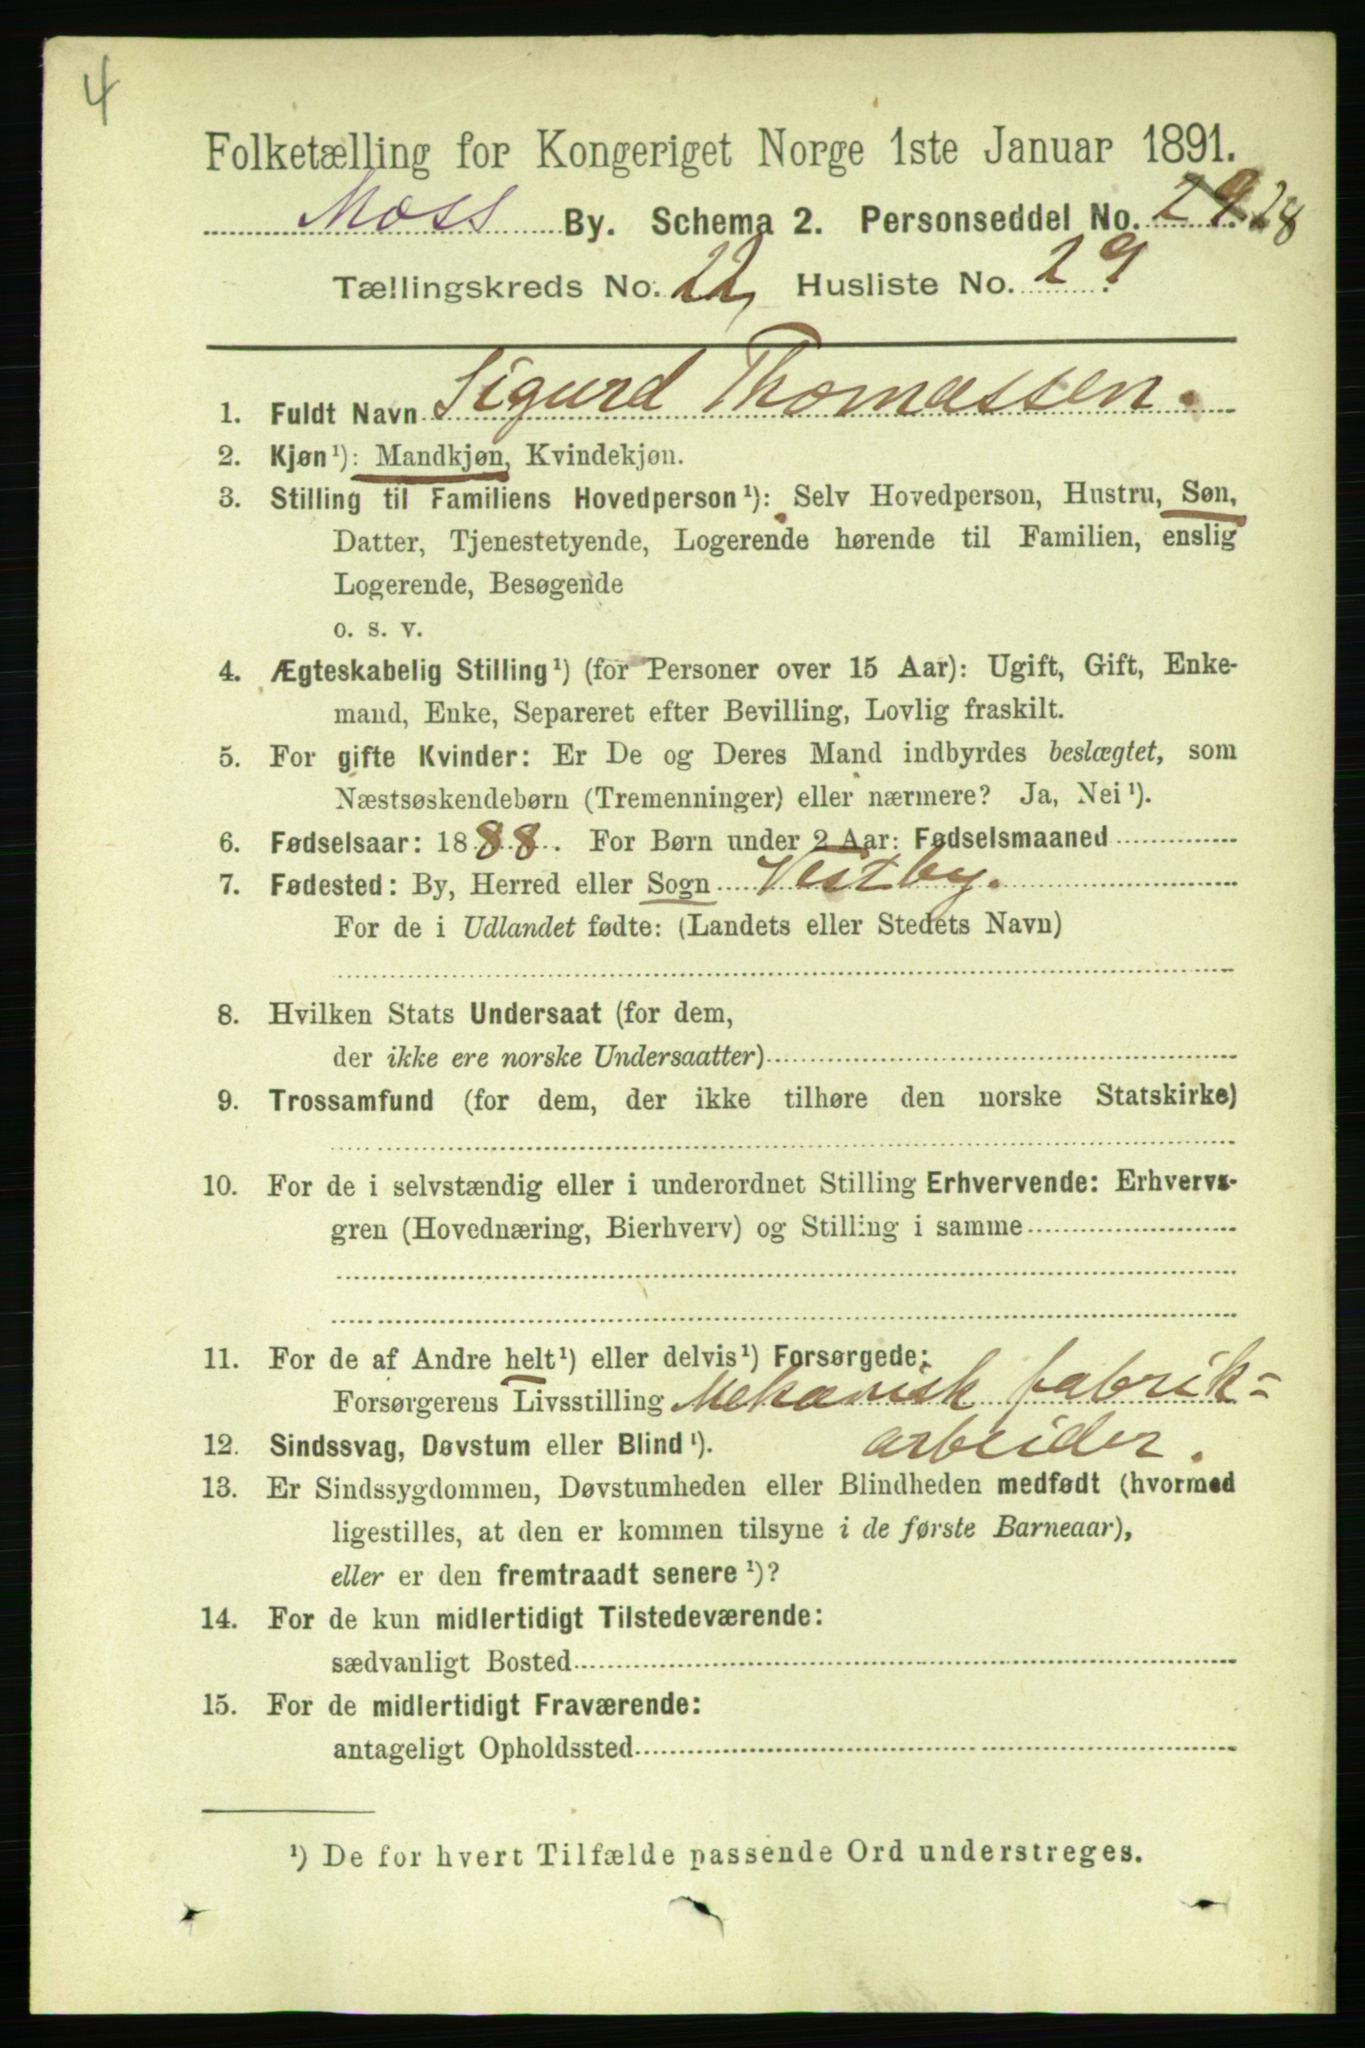 4
Folketælling for Kongeriget Norge 1ste Januar 1891.
Moss By. Schema 2. Personseddel No. 29 28
Tællingskreds No. 22, Husliste No. 29.
1. Fuldt Navn Sigurd Thomassen.
2. Kjøn¹): Mandkjøn, Kvindekjøn.
3. Stilling til Familiens Hovedperson¹): Selv Hovedperson, Hustru, Søn,
Datter, Tjenestetyende, Logerende hørende til Familien, enslig
Logerende, Besøgende
o. s. v.
4. Ægteskabelig Stilling¹) (for Personer over 15 Aar): Ugift, Gift, Enke-
mand, Enke, Separeret efter Bevilling, Lovlig fraskilt.
5. For gifte Kvinder: Er De og Deres Mand indbyrdes beslægtet, som
Næstsøskendebørn (Tremenninger) eller nærmere? Ja, Nei¹).
6. Fødselsaar: 1888. For Børn under 2 Aar: Fødselsmaaned
7. Fødested: By, Herred eller Sogn Vestby.
For de i Udlandet fødte: (Landets eller Stedets Navn)
8. Hvilken Stats Undersaat (for dem,
der ikke ere norske Undersaatter)
9. Trossamfund (for dem, der ikke tilhøre den norske Statskirke)
10. For de i selvstændig eller i underordnet Stilling Erhvervende: Erhvervs-
gren (Hovednæring, Bierhverv) og Stilling i samme
11. For de af Andre helt¹) eller delvis¹) Forsørgede:
Forsørgerens Livsstilling Mekanisk fabrik=
12. Sindssvag, Døvstum eller Blind¹). arbeider.
13. Er Sindssygdommen, Døvstumheden eller Blindheden medfødt (hvormed
ligestilles, at den er kommen tilsyne i de første Barneaar),
eller er den fremtraadt senere¹)?
14. For de kun midlertidigt Tilstedeværende:
sædvanligt Bosted
15. For de midlertidigt Fraværende:
antageligt Opholdssted
¹) De for hvert Tilfælde passende Ord understreges.